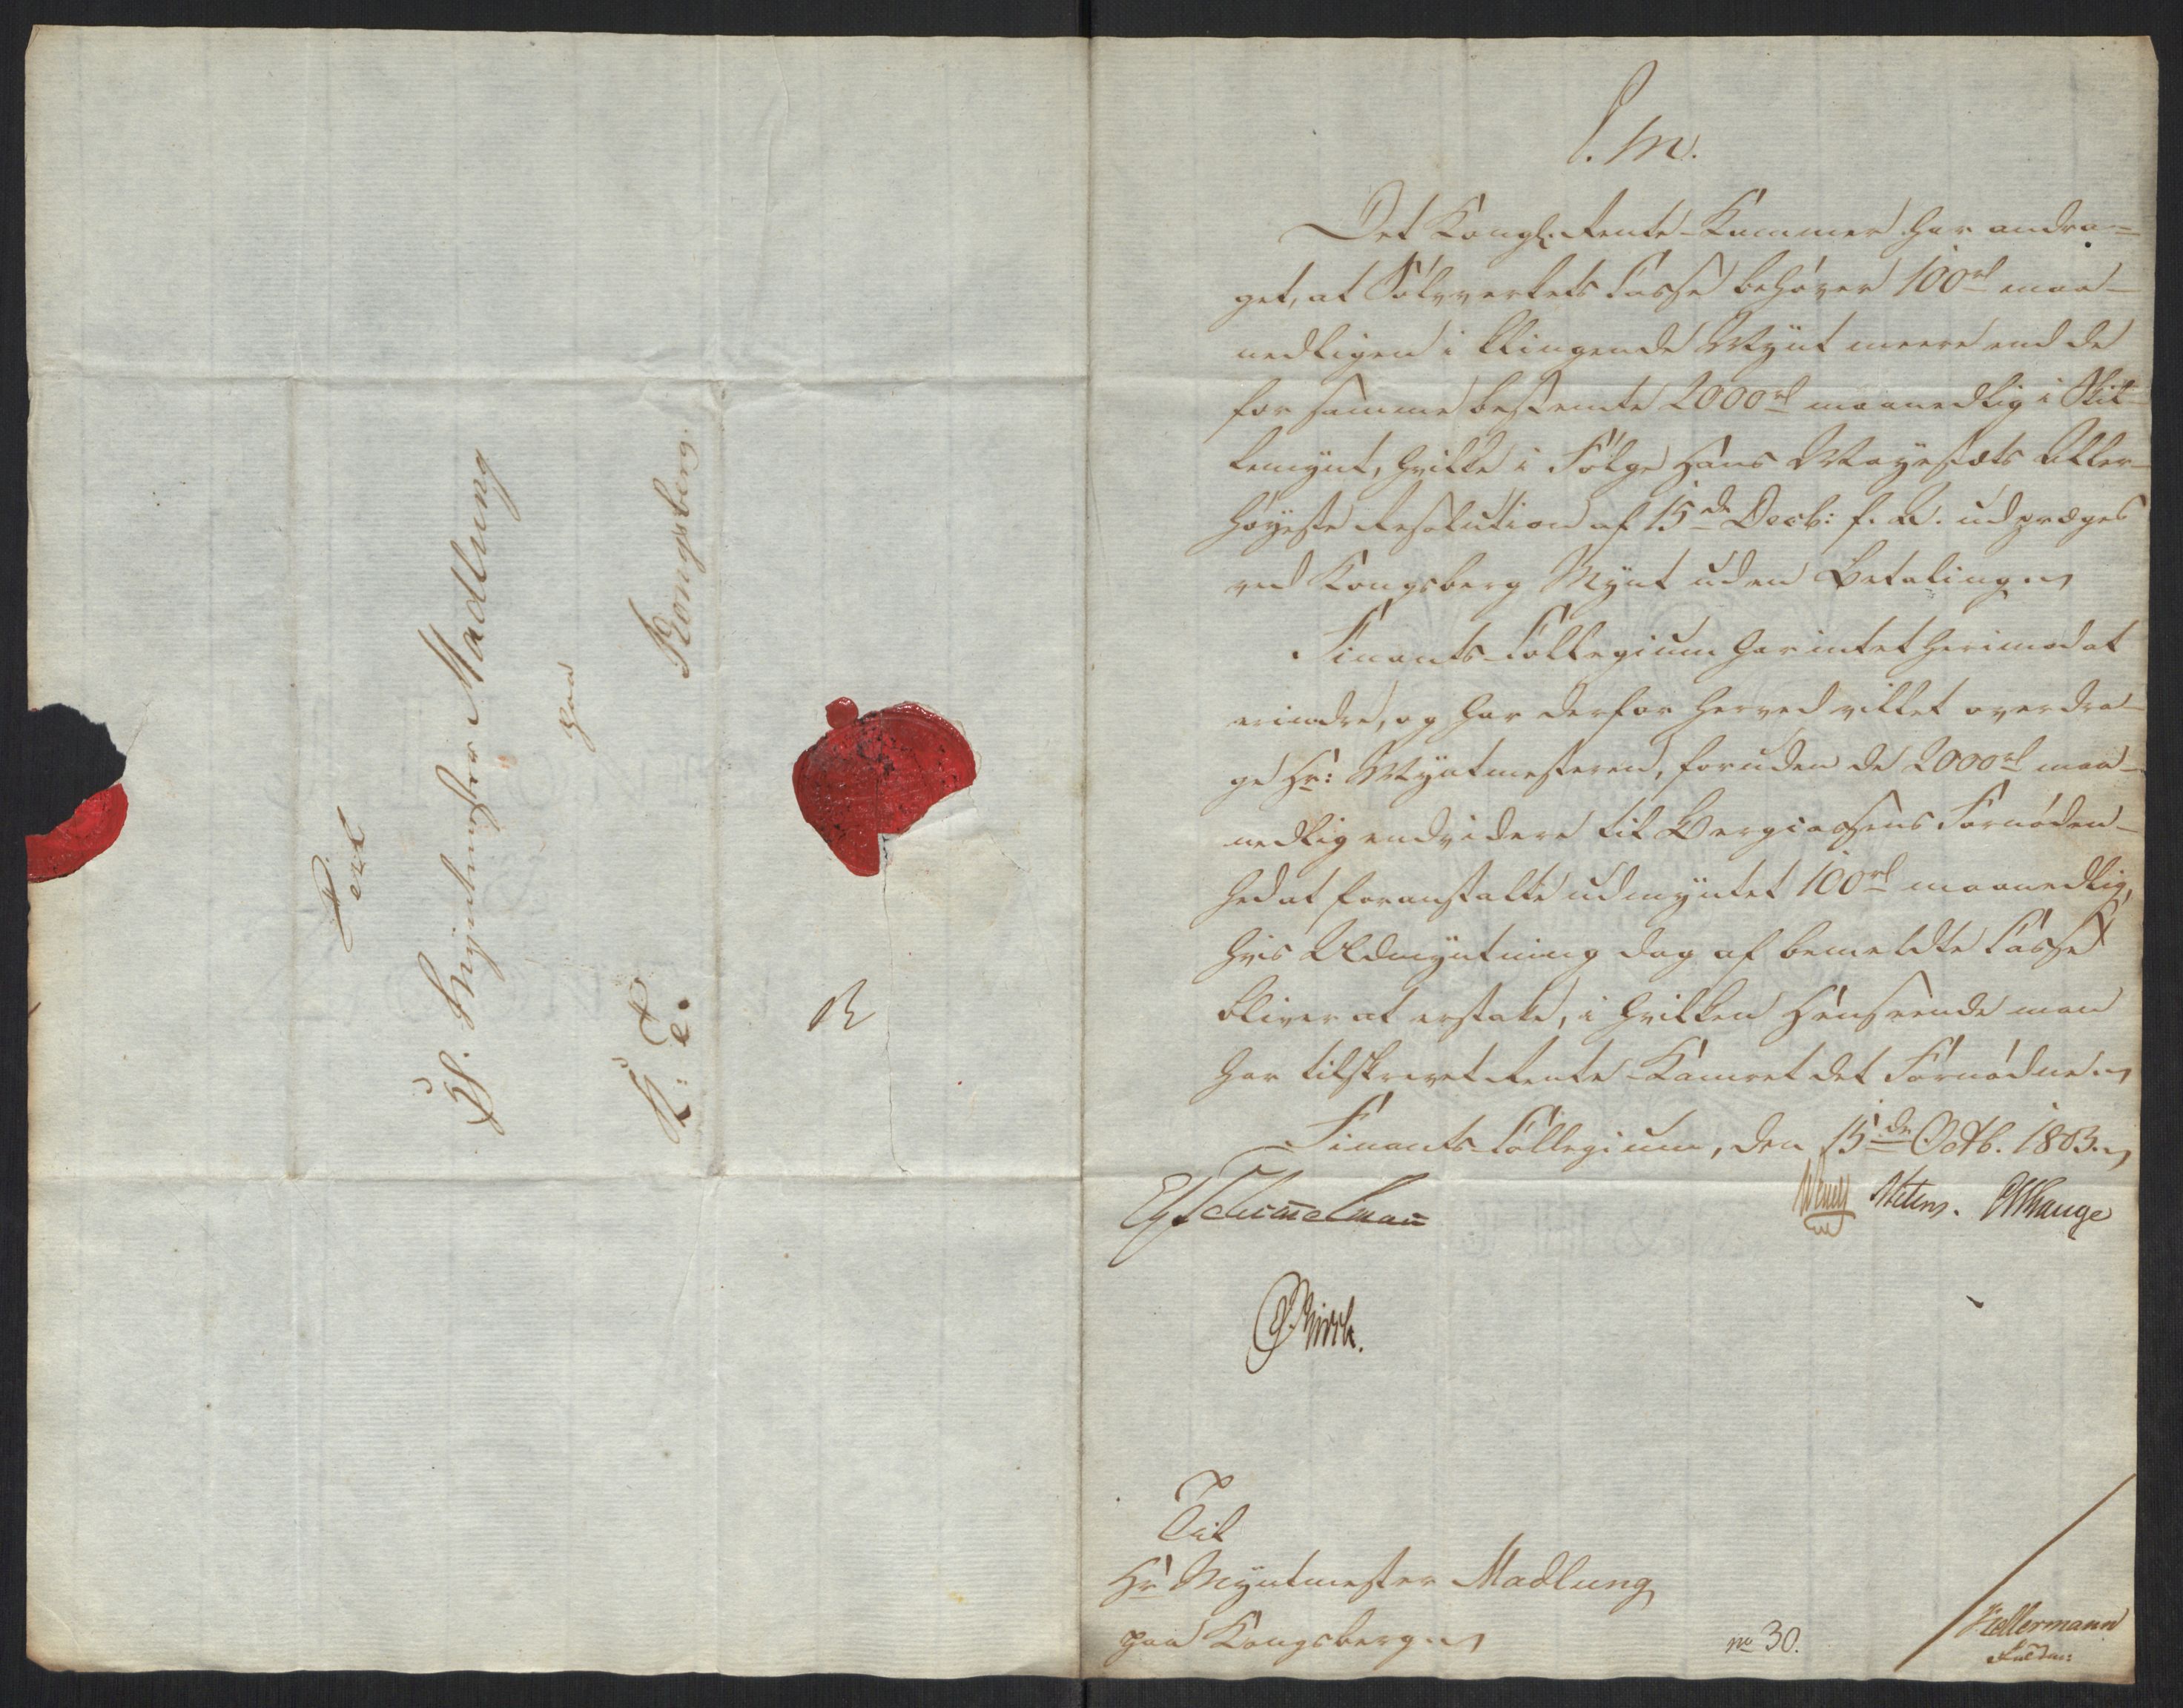 Til
H. Myntmester Madlung
paa
K: T. Kongsberg.
R
P. M.
Det Kongl. Rente-Kammer har andra-
get, at Sølvverkets Casse behøver 100 rd maa-
nedligen i klingende Mynt meere end de
for samme bestemte 2000 rd maanedlig i Skil-
lemynt, hvilke i Følge Hans Mayestæts Aller-
høyeste Resolution af 15de Decb: f. A. udpræges
ved Kongsberg Mynt uden Betaling.
Finants-Collegium har intet herimod at
erindre, og har derfor herved villet overdra-
ge Hr: Myntmesteren, foruden de 2000 rd maa-
nedlig endvidere til Bergcassens Fornøden-
hed at foranstalte udmyntet 100 rd maanedlig,
hvis Udmyntning dog af bemeldte Casse
bliver at erstate, i hvilken Henseende man
har tilskrevet Rente-Kamret det Fornødne.
Finants-Collegium, den 15de Octb. 1803.
E Schimmelmann Wendt Meters. Hauge
Birch.
Til
Hr Myntmester Madlung
paa Kongsberg.
no 30.
Kellermann